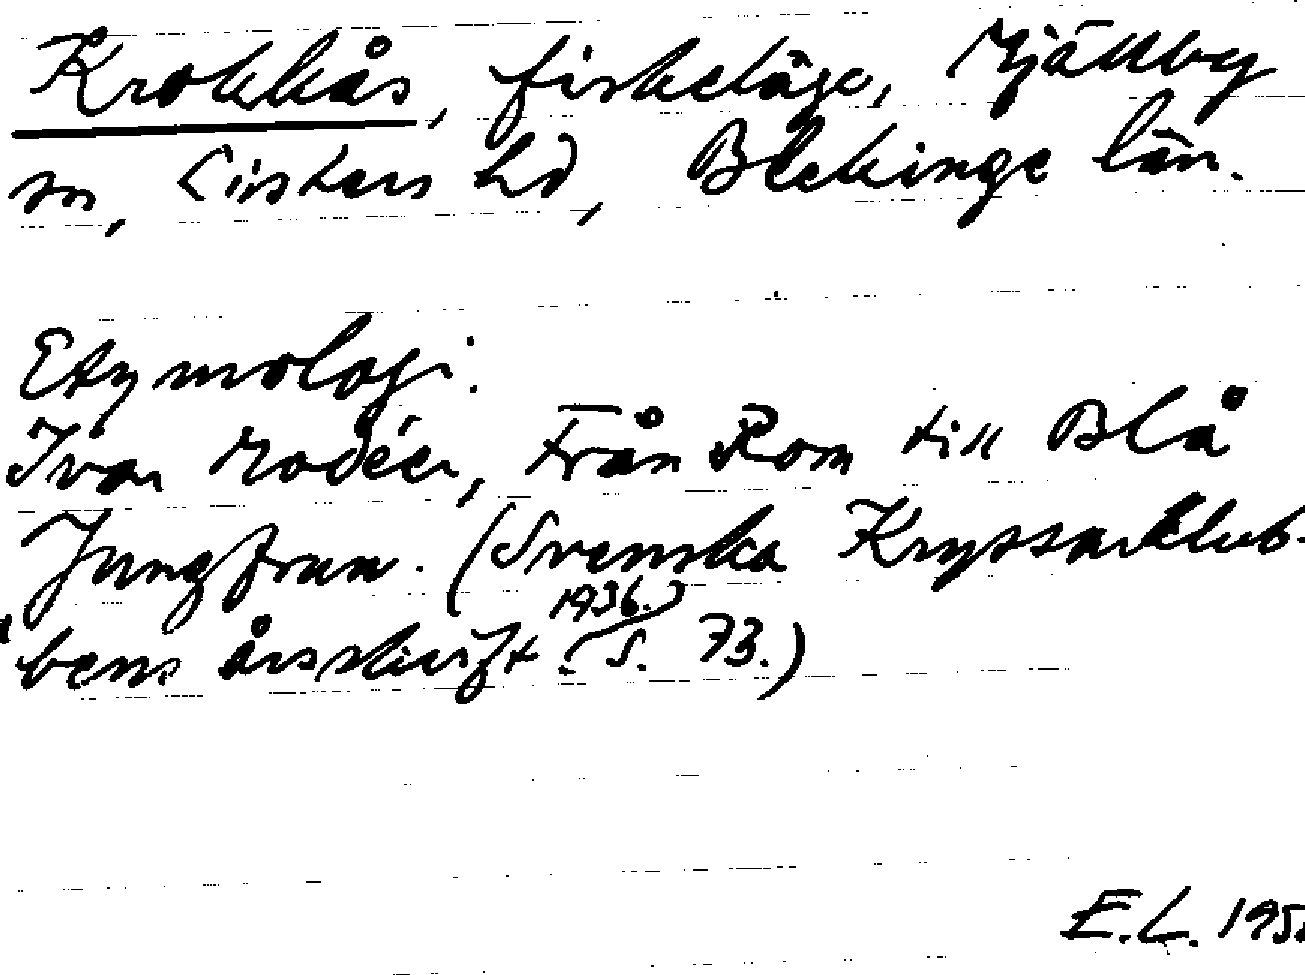 Krokkås, fiskeläge, Mjällby
sn, Listers hd, Blekinge län.
Etymologi:
Ivar Modéer, Från Rom till Blå
Jungfrun. (Svenska Kryssarklub-
bens årsskrift 1936. S. 73.)
E.L. 195